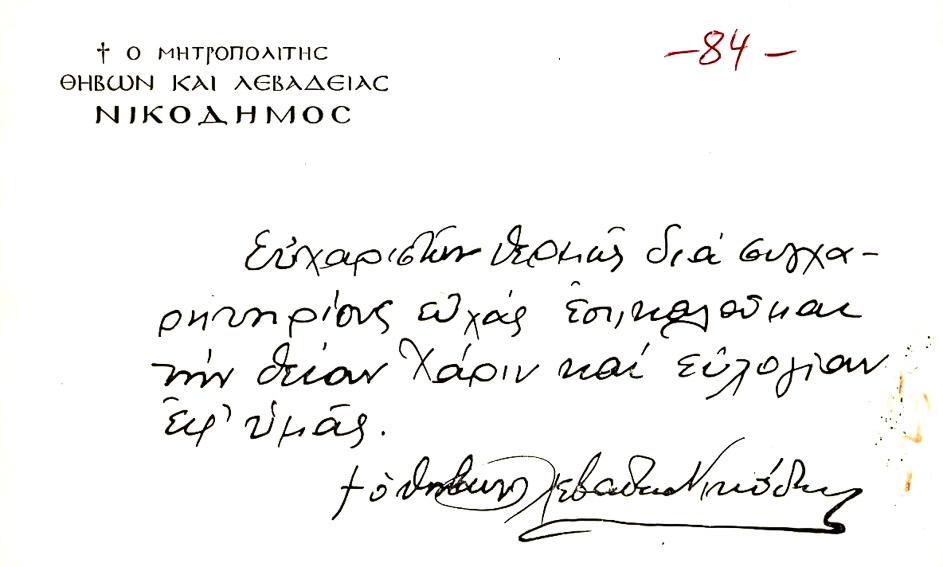 † Ο ΜΗΤΡΟΠΟΛΙΤΗΣ
ΘΗΒΩΝ ΚΑΙ ΛΕΒΑΔΕΙΑΣ
ΝΙΚΟΔΗΜΟΣ
-84-
Εὐχαριστῶν θερμῶς διά συγχα-
ρητηρίους εὐχάς ἐπικαλοῦμαι
τήν θείαν Χάριν καί εὐλογίαν
ἐφ' ὑμᾶς.
† ὁ Θηβῶν Λεβαδείας Νικόδημος